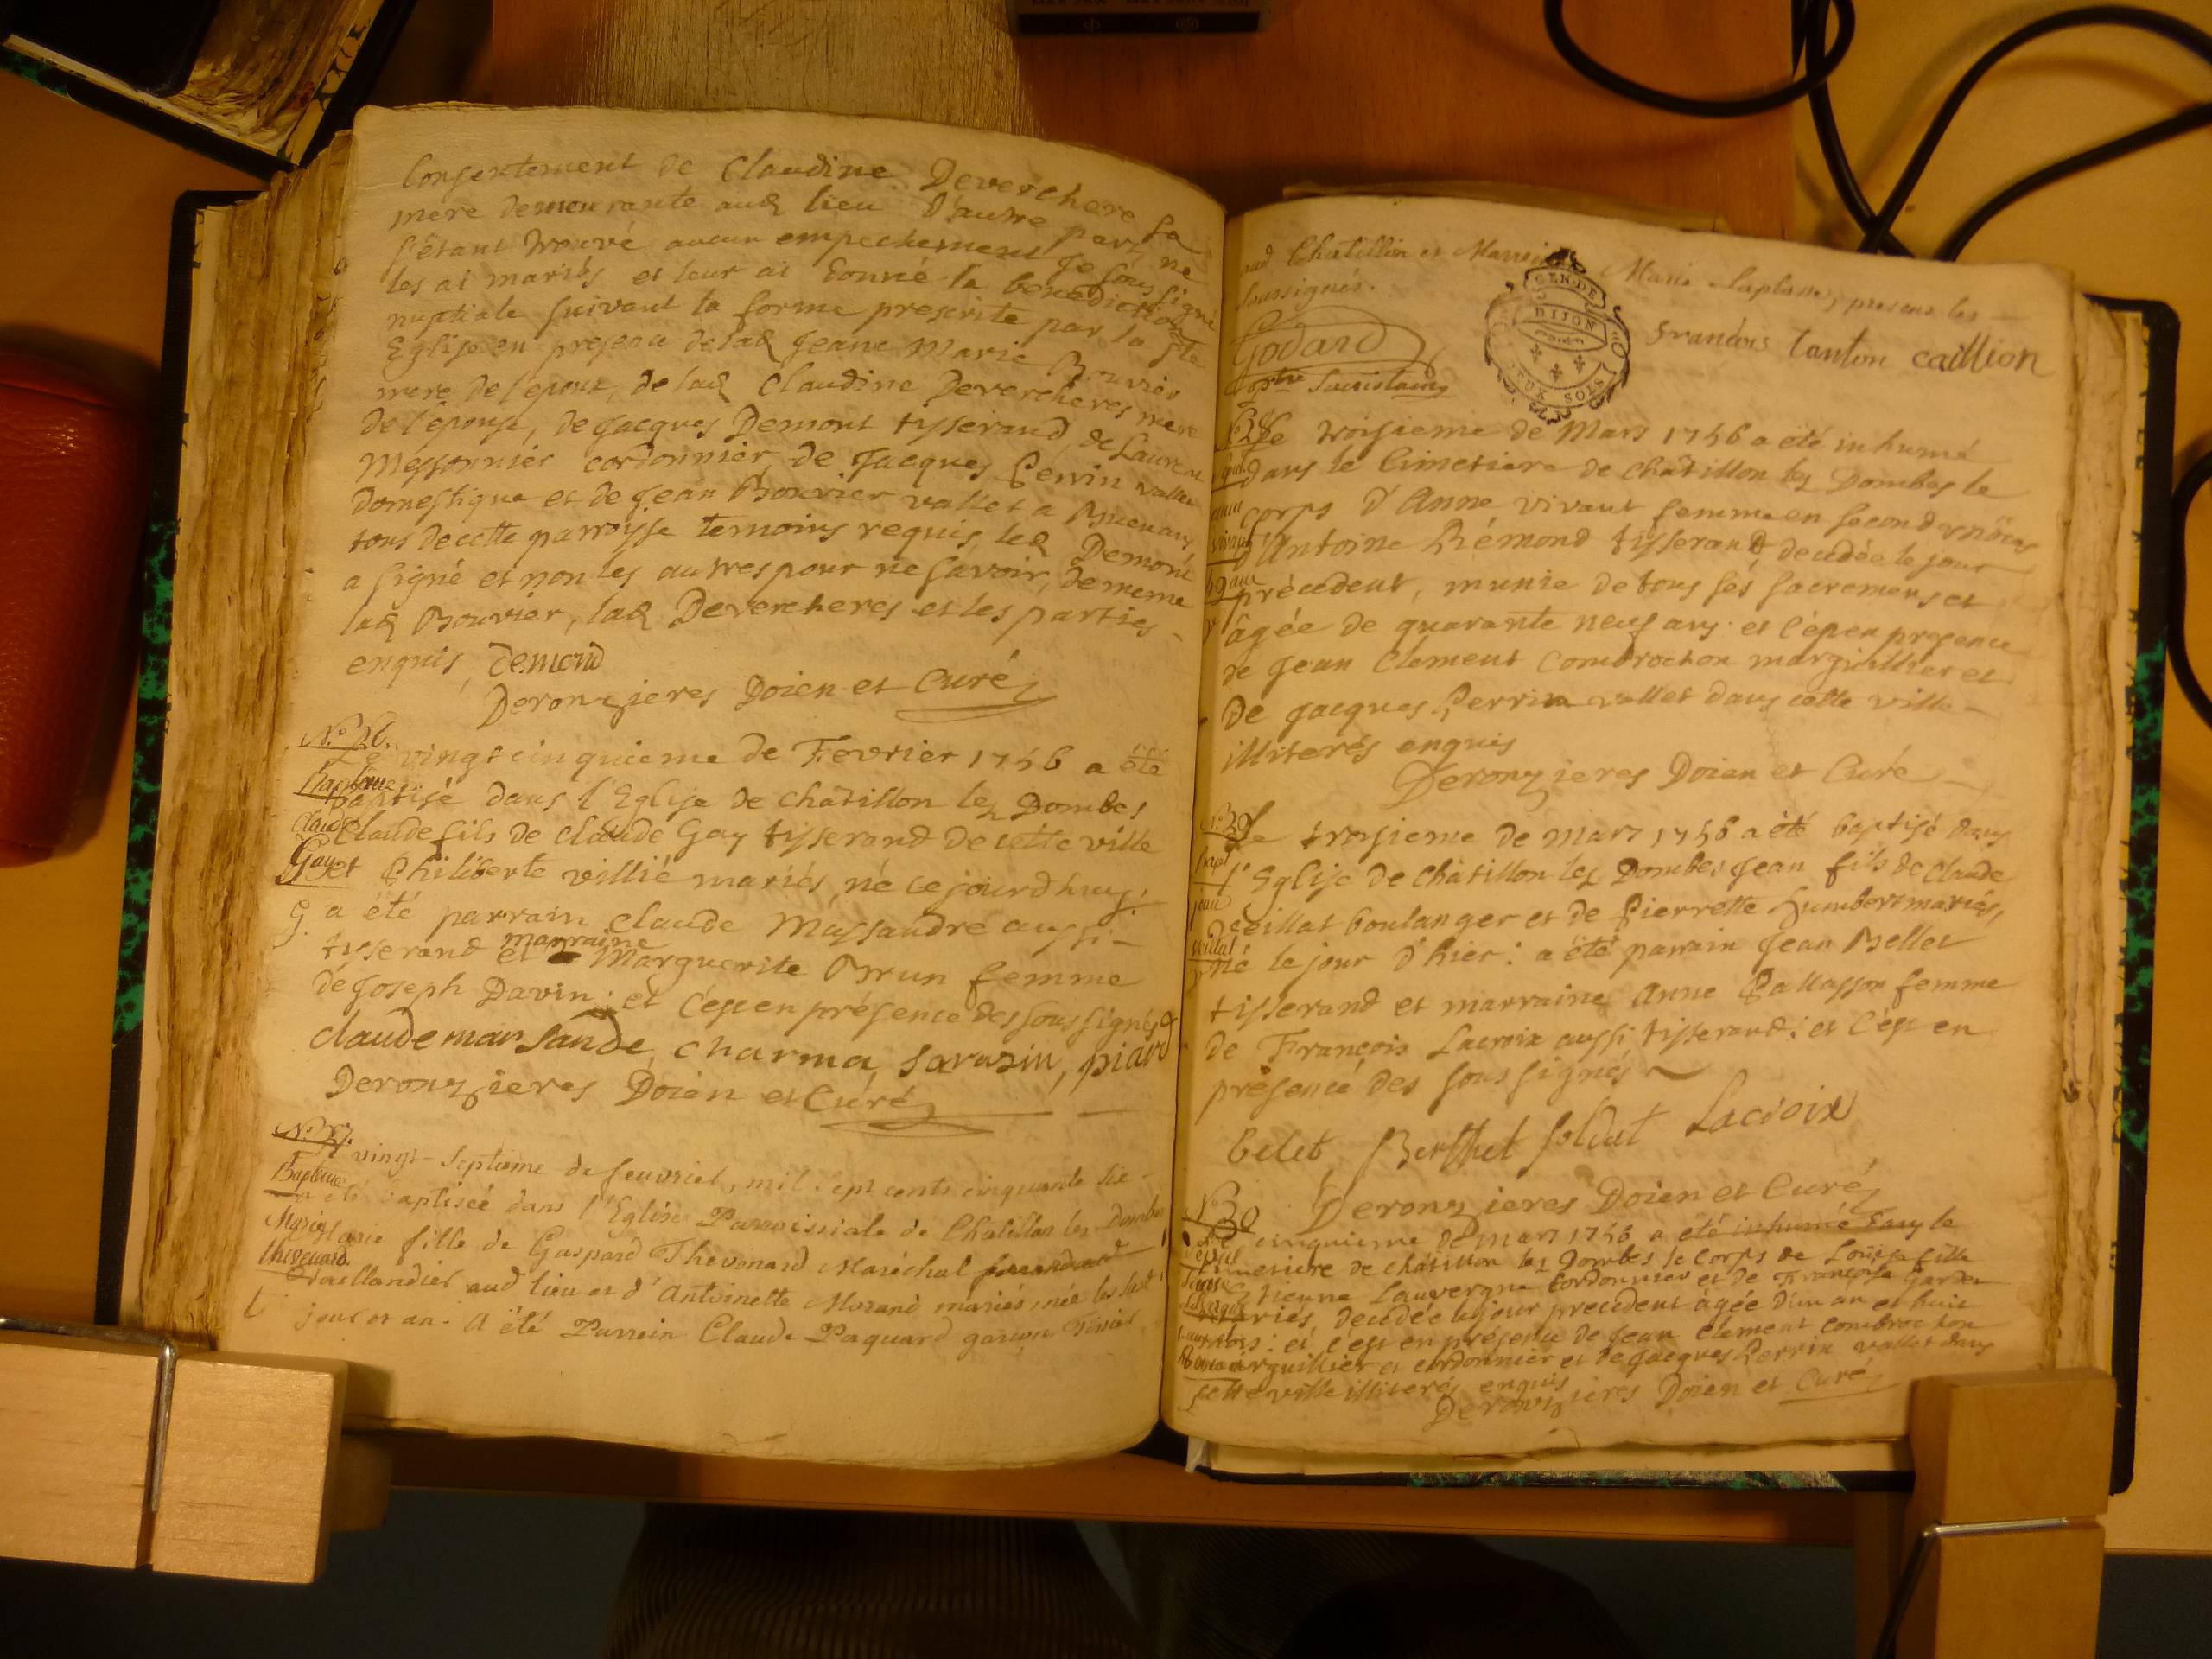 Consentement de Claudine Deverchere sa
mere demeurante aud lieu d'autre part, ne
s'étant trouvé aucun empechement Je soussigné
les ai mariés et leur ai donné la benediction
nuptiale suivant la forme prescrite par la Ste
Eglise en presence de lad Jeane Marie Bouvier
mere de l'epoux, de lad Claudine Devercheres mere
de l'épouse, de Jacques Demont tisserand, de Laurent
Messonnier cordonnier de Jacques Perrin vallet
domestique et de Jean Bouvier vallet a
tous de cette parroisse temoins requis, led Demont
a signé et non les autres pour ne savoir, de meme
lad Bouvier, lad Devercheres et les parties
enquis, demond
Deronzieres Doien et Curé
N.° 26.
Le vingt cinquieme de Fevrier 1756 a été
Bapteme
baptisé dans l'Eglise de Châtillon lez Dombes
Claude
Claude fils de claude Gay tisserand de cette ville
Gay
et Philiberte villié mariés, né ce jourdhuy:
G. a été parrain claude Massandre aussi
tisserand et marraine Marguerite Brun femme
de Joseph Davin: et c'est en présence des soussignés
claude marsande, charma, sarasin, piard
Deronzieres Doien et Curé
N.° 27.
Le vingt-septieme de feuvrier, mil sept cents cinquante six
Bapteme
a été baptisée dans l'Eglise Parroissiale de Chatillon les Dombes
Marie
Marie fille de Gaspard Thevenard Maréchal
thevenard
Taillandier aud lieu et d'Antoinette Morand mariés née les susd
t jour et an. A été Parrein Claude Paquard garçon
aud Chatillon et Marreine Marie Laplasse, presens les
soussignés.
Godard françois tanton caillion
pbtre Sacristain
GEN. DE
DIJON
DEUX SOLS
N° 28
Le troisieme de Mars 1756 a été inhumé
dans le Cimetiere de châtillon lez Dombes le
corps d'Anne vivant femme en secondes nôces
vivant
d'Antoine Rémond tisserand, decedée le jour
49 ans
précedent, munie de tous ses sacremens et
âgée de quarante neuf ans: et c'est en presence
de Jean Clement Combrochon marguillier et
De Jacques Perrin vallet dans cette ville
illiterés enquis
Deronzieres Doien et Curé
N.° 29
Le troisieme de Mars 1756 a été baptisé dans
bapt
l'Eglise de châtillon lez Dombes Jean fils de Claude
jean
ceillat boulanger et de Pierrette humbert mariés,
né le jour d'hier: a été parrain Jean Bellet
tisserand et marraine Anne Pallasson femme
de François Lacroix aussi tisserand: et c'est en
présence des soussignés
belet Berthet soldat Lacroix
Deronzieres Doien et Curé
N.° 30
Le cinquieme de mars 1756 a été inhumé dans le
cimetiere de châtillon lez Dombes le corps de Louise fille
d'Etienne Lauvergne Cordonnier et de Françoise Garden
mariés, decedée le jour precedent âgée d'un an et huit
mois: et c'est en présence de Jean Clement combrochon
marguillier et cordonnier et de Jacques Perrin vallet dans
cette ville illiterés enquis
Deronzieres Doien et Curé